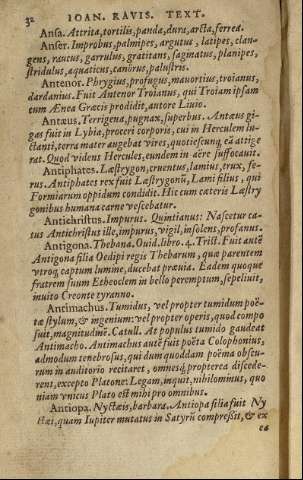 32 IOAN. RAVIS. TEXT.
Ansa. Attrita, tortilis, panda, dura, arcta, ferrea.
Anser. Improbus, palmipes, argutus, latipes, clan-
gens, raucus, garrulus, gratitans, saginatus, planipes,
stridulus, aquaticus, canorus, palustris.
Antenor. Phrygius, profugus, mauortius, troianus,
dardanius. Fuit Antenor Troianus, qui Troiam ipsam
cum Ænea Græcis prodidit, autore Liuio.
Antæus. Terrigena, pugnax, superbus. Antæus gi-
gas fuit in Lybia, proceri corporis, cui in Herculem lu-
ctanti, terra mater augebat vires, quotiescunq; eã attige
rat. Quod videns Hercules, eundem in aëre suffocauit.
Antiphates. Læstrygon, cruentus, lamius, trux, fe-
rus. Antiphates rex fuit Læstrygonũ, Lami filius, qui
Formiarum oppidum condidit. Hic cum cæteris Læstry
gonibus humana carne vescebatur.
Antichristus. Impurus. Quintianus: Nascetur ca-
tus Antichristus ille, impurus, vigil, insolens, profanus.
Antigona. Thebana. Ouid. libro. 4. Trist. Fuit autẽ
Antigona filia Oedipi regis Thebarum, quæ parentem
vtroq; captum lumine, ducebat præuia. Eadem quoque
fratrem suum Etheoclem in bello peremptum, sepeliuit,
inuito Creonte tyranno.
Antimachus. Tumidus, vel propter tumidum poë-
tæ stylum, & ingenium: vel propter operis, quod compo
suit, magnitudinẽ. Catull. At populus tumido gaudeat
Antimacho. Antimachus autẽ fuit poëta Colophonius,
admodum tenebrosus, qui dum quoddam poëma obscu-
rum in auditorio recitaret, omnesq; propterea discede-
rent, excepto Platone: Legam, inquit, nihilominus, quo
niam vnicus Plato est mihi pro omnibus.
Antiopa. Nycteis, barbara. Antiopa filia fuit Ny
ctei, quam Iupiter mutatus in Satyrũ compressit, & ex
ea